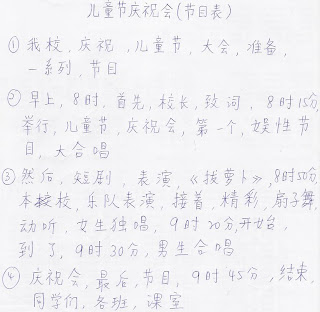 儿童节庆祝会(节目表)
① 我校,庆祝,儿童节,大会,准备,
一系列,节目
② 早上,8时,首先,校长,致词,8时15分,
举行,儿童节,庆祝会,第一个,娱性节
目,大合唱
③ 然后,短剧,表演,《拔萝卜》,8时50分,
本校,乐队表演,接着,精彩,扇子舞,
动听,女生独唱,9时20分,开始,
到了,9时30分,男生合唱
④ 庆祝会,最后,节目,9时45分,结束,
同学们,各班,课室